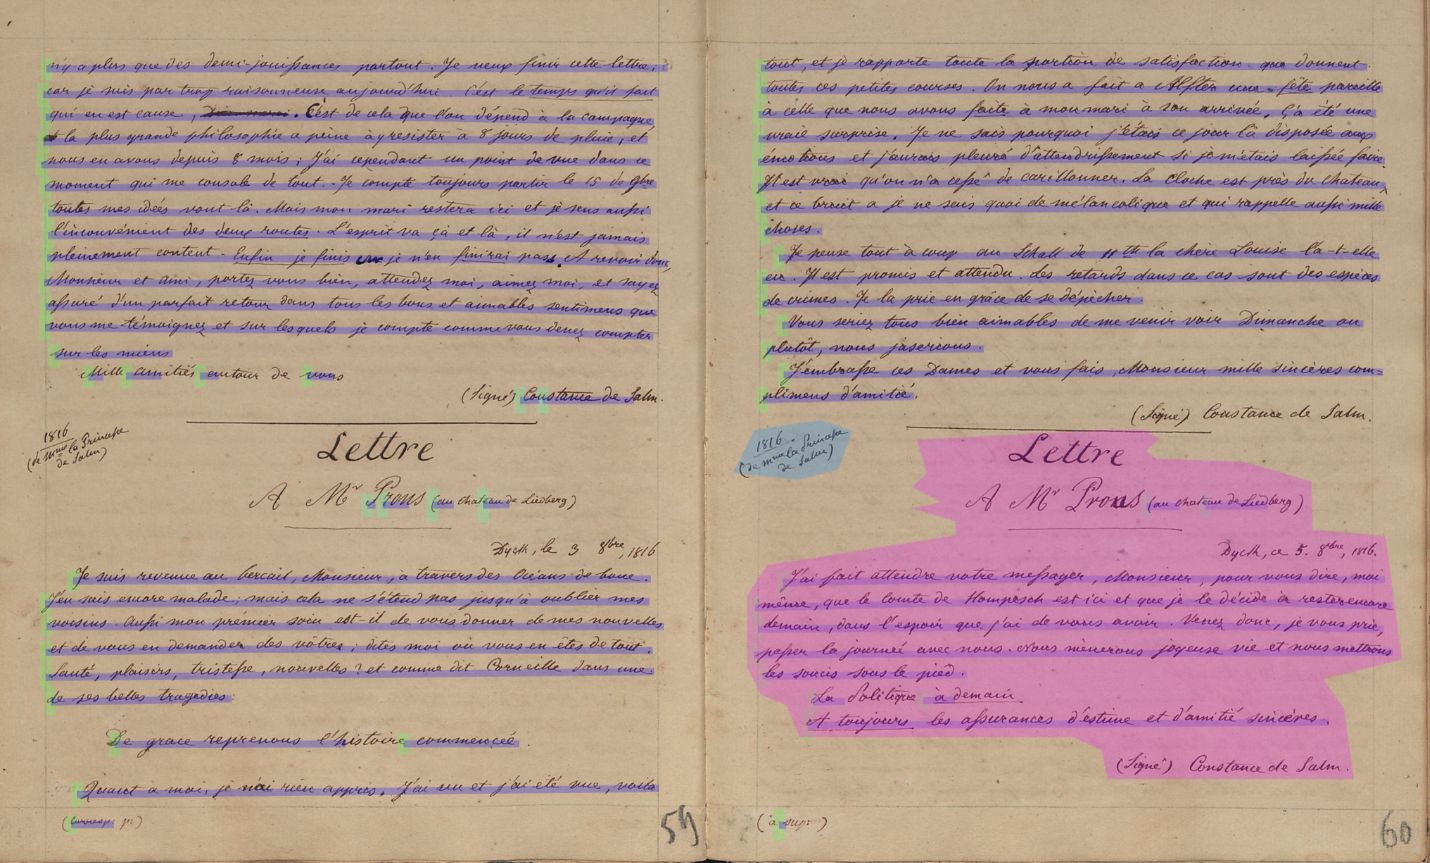 n'y a plus que des demi-jouissances partout. Je veux finir cette lettre,
car je suis par trop raisonneuse aujourd'hui C'est le temps qu'il fait
qui en est cause, . C'est de cela que l'on dépend à la campagne
la plus grande philosophie a peine à y resister à 8 jours de pluie, et
nous en avons depuis 8 mois ; j'ai cependant un point de vue dans ce
moment qui me console de tout. Je compte toujours partir le 15 de 9bre
toutes mes idées vont là. Mais mon mari restera ici et je sens aussi
l'inconvénient des deux routes. L'esprit va çà et là, il n'est jamais
pleinement content. Enfin je finis je n'en finirai pas. A revoir donc,
Monsieur et ami, portez vous bien, attendez moi, aimez moi, et soyez
assuré d'un parfait retour dans tous les bons et aimables sentimens que
vous me témoignez et sur lesquels je compte comme vous devez compter
sur les miens
Mille amitiés autour de vous
(Signé) Constance de Salm.
1816
(de Mme la Princesse
de Salm)
Lettre
A Mr Prous (au chateau de Liedberg)
Dyck, le 3 8bre, 1816
Je suis revenue au bercail, Monsieur, à travers des Océans de boue.
J'en suis encore malade ; mais cela ne s'étend pas jusqu'à oublier mes
voisins. Aussi mon prémier soin est-il de vous donner de mes nouvelles
et de vous en demander des vôtres ; dites moi où vous en êtes de tout.
Santé, plaisirs, tristesse, nouvelles ? et comme dit Corneille dans une
de ses belles tragédies :
De grace reprenons l'histoire commencée.
Quant à moi, je n'ai rien appris. J'ai vu et j'ai été vue, voilà
59
tout, et je rapporte toute la portion de satisfaction que donnent
toutes ces petites courses. On nous a fait a Alfter une fête pareille
à celle que nous avons faite à mon mari à son arrivée, ç'a été une
vraie surprise. Je ne sais pourquoi j'étais ce jour là disposée aux
émotions et j'aurais pleuré d'attendrissement si je m'étais laissée faire.
Il est vrai qu'on n'a cessé de carillonner. La cloche est près du chateau,
et ce bruit a je ne sais quoi de mélancolique et qui rappelle aussi mille
choses.
Je pense tout à coup au Schall de 11tte la chère Louise l'a-t-elle
eu. Il est promis et attendu. Les retards dans ce cas sont des espèces
de crimes. Je la prie en grâce de se dépêcher.
Vous seriez tous bien aimables de me venir voir Dimanche ou
plutôt, nous jaserions.
J'embrasse ces Dames et vous fais, Monsieur mille sincères com-
plimens d'amitié.
(Signé) Constance de Salm.
1816.
(de Mme la Princesse
de Salm)
Lettre
A Mr Prous (au chateau de Liedberg)
Dyck, ce 5. 8bre, 1816.
J'ai fait attendre votre messager, Monsieur, pour vous dire, moi
même, que le Comte de Hompesch est ici et que je le décide à rester encore
demain, dans l'espoir que j'ai de vous avoir. Venez donc, je vous prie,
passer la journée avec nous. Nous mènerons joyeuse vie et nous mettrons
les soucis sous le pied.
La Politique à demain
A toujours les assurances d'estime et d'amitié sincères.
(Signé) Constance de Salm.
60